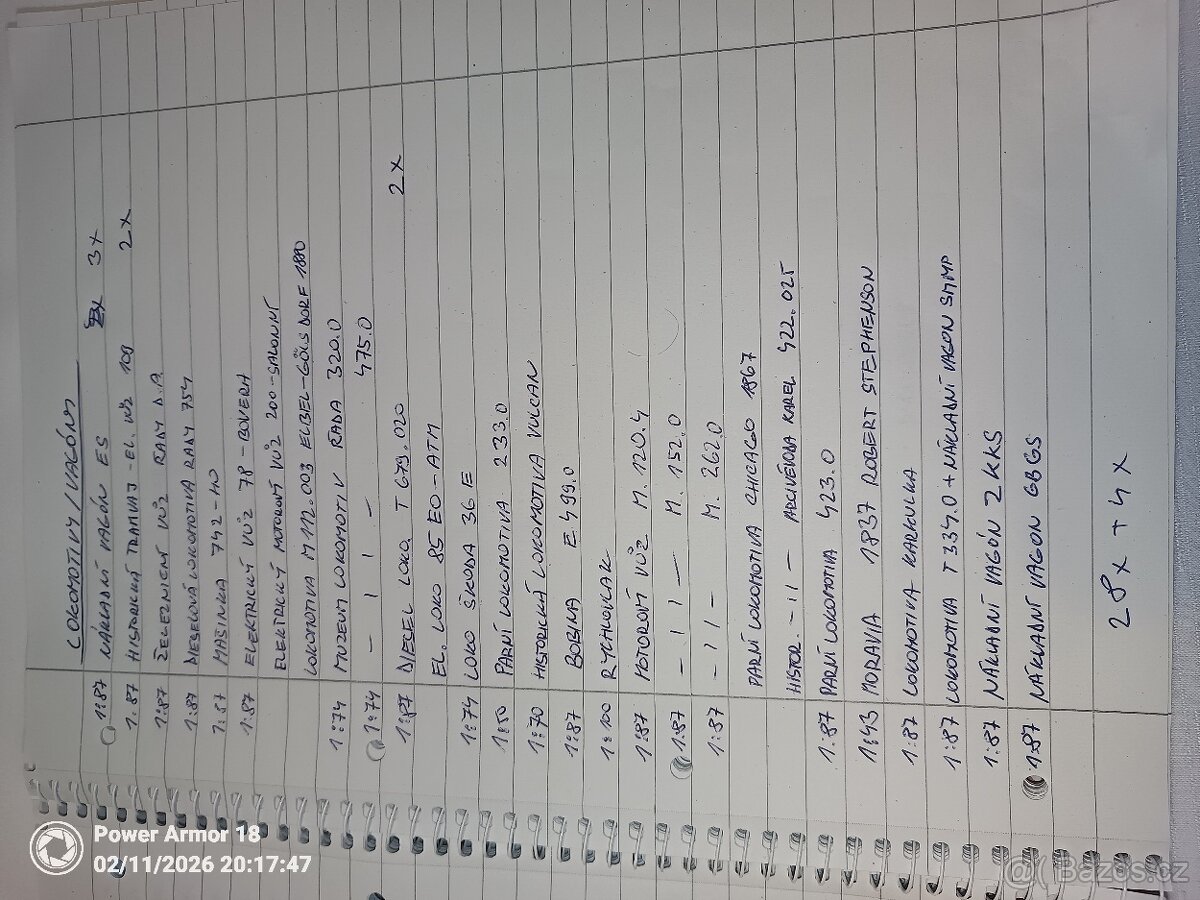 LOKOMOTIVY/VAGÓNY
1:87 NÁKLADNÍ VAGÓN ES 3x
1:87 HISTORICKÁ TRAMVAJ-EL. VŮZ 109 2x
1:87 ŽELEZNIČNÍ VŮZ ŘADY D.A
1:87 DIESELOVÁ LOKOMOTIVA ŘADY 754
1:87 MAŠINKA 742-HO
1:87 ELEKTRICKÝ VŮZ 78-BOVERA
ELEKTRICKÝ MOTOROVÝ VŮZ 200-SALONNÍ
LOKOMOTIVA M 112.003 ELBEL-GÖLSDORF 1880
1:74 MUZEUM LOKOMOTIV ŘADA 320.0
1:74 - 11 - 475.0
1:87 DIESEL LOKO. T 679.020 2x
EL. LOKO 85 EO-ATM
1:74 LOKO ŠKODA 36 E
1:50 PARNÍ LOKOMOTIVA 233.0
1:70 HISTORICKÁ LOKOMOTIVA VULCAN
1:87 BOBINA E 499.0
1:100 RYCHLOVLAK
1:87 MOTOROVÝ VŮZ M. 120.4
1:87 - 11 - M. 152.0
1:87 - 11 - M. 262.0
PARNÍ LOKOMOTIVA CHICAGO 1867
HISTOR. - 11 - ARCIVÉVODA KAREL 422.025
1:87 PARNÍ LOKOMOTIVA 423.0
1:43 MORAVIA 1837 ROBERT STEPHENSON
1:87 LOKOMOTIVA KARKULKA
1:87 LOKOMOTIVA T 334.0 + NÁKLADNÍ VAGON SMMP
1:87 NÁKLADNÍ VAGÓN ZKKS
1:87 NÁKLADNÍ VAGON GBGS
28x + 4x
Power Armor 18
02/11/2026 20:17:47
Bazos.cz